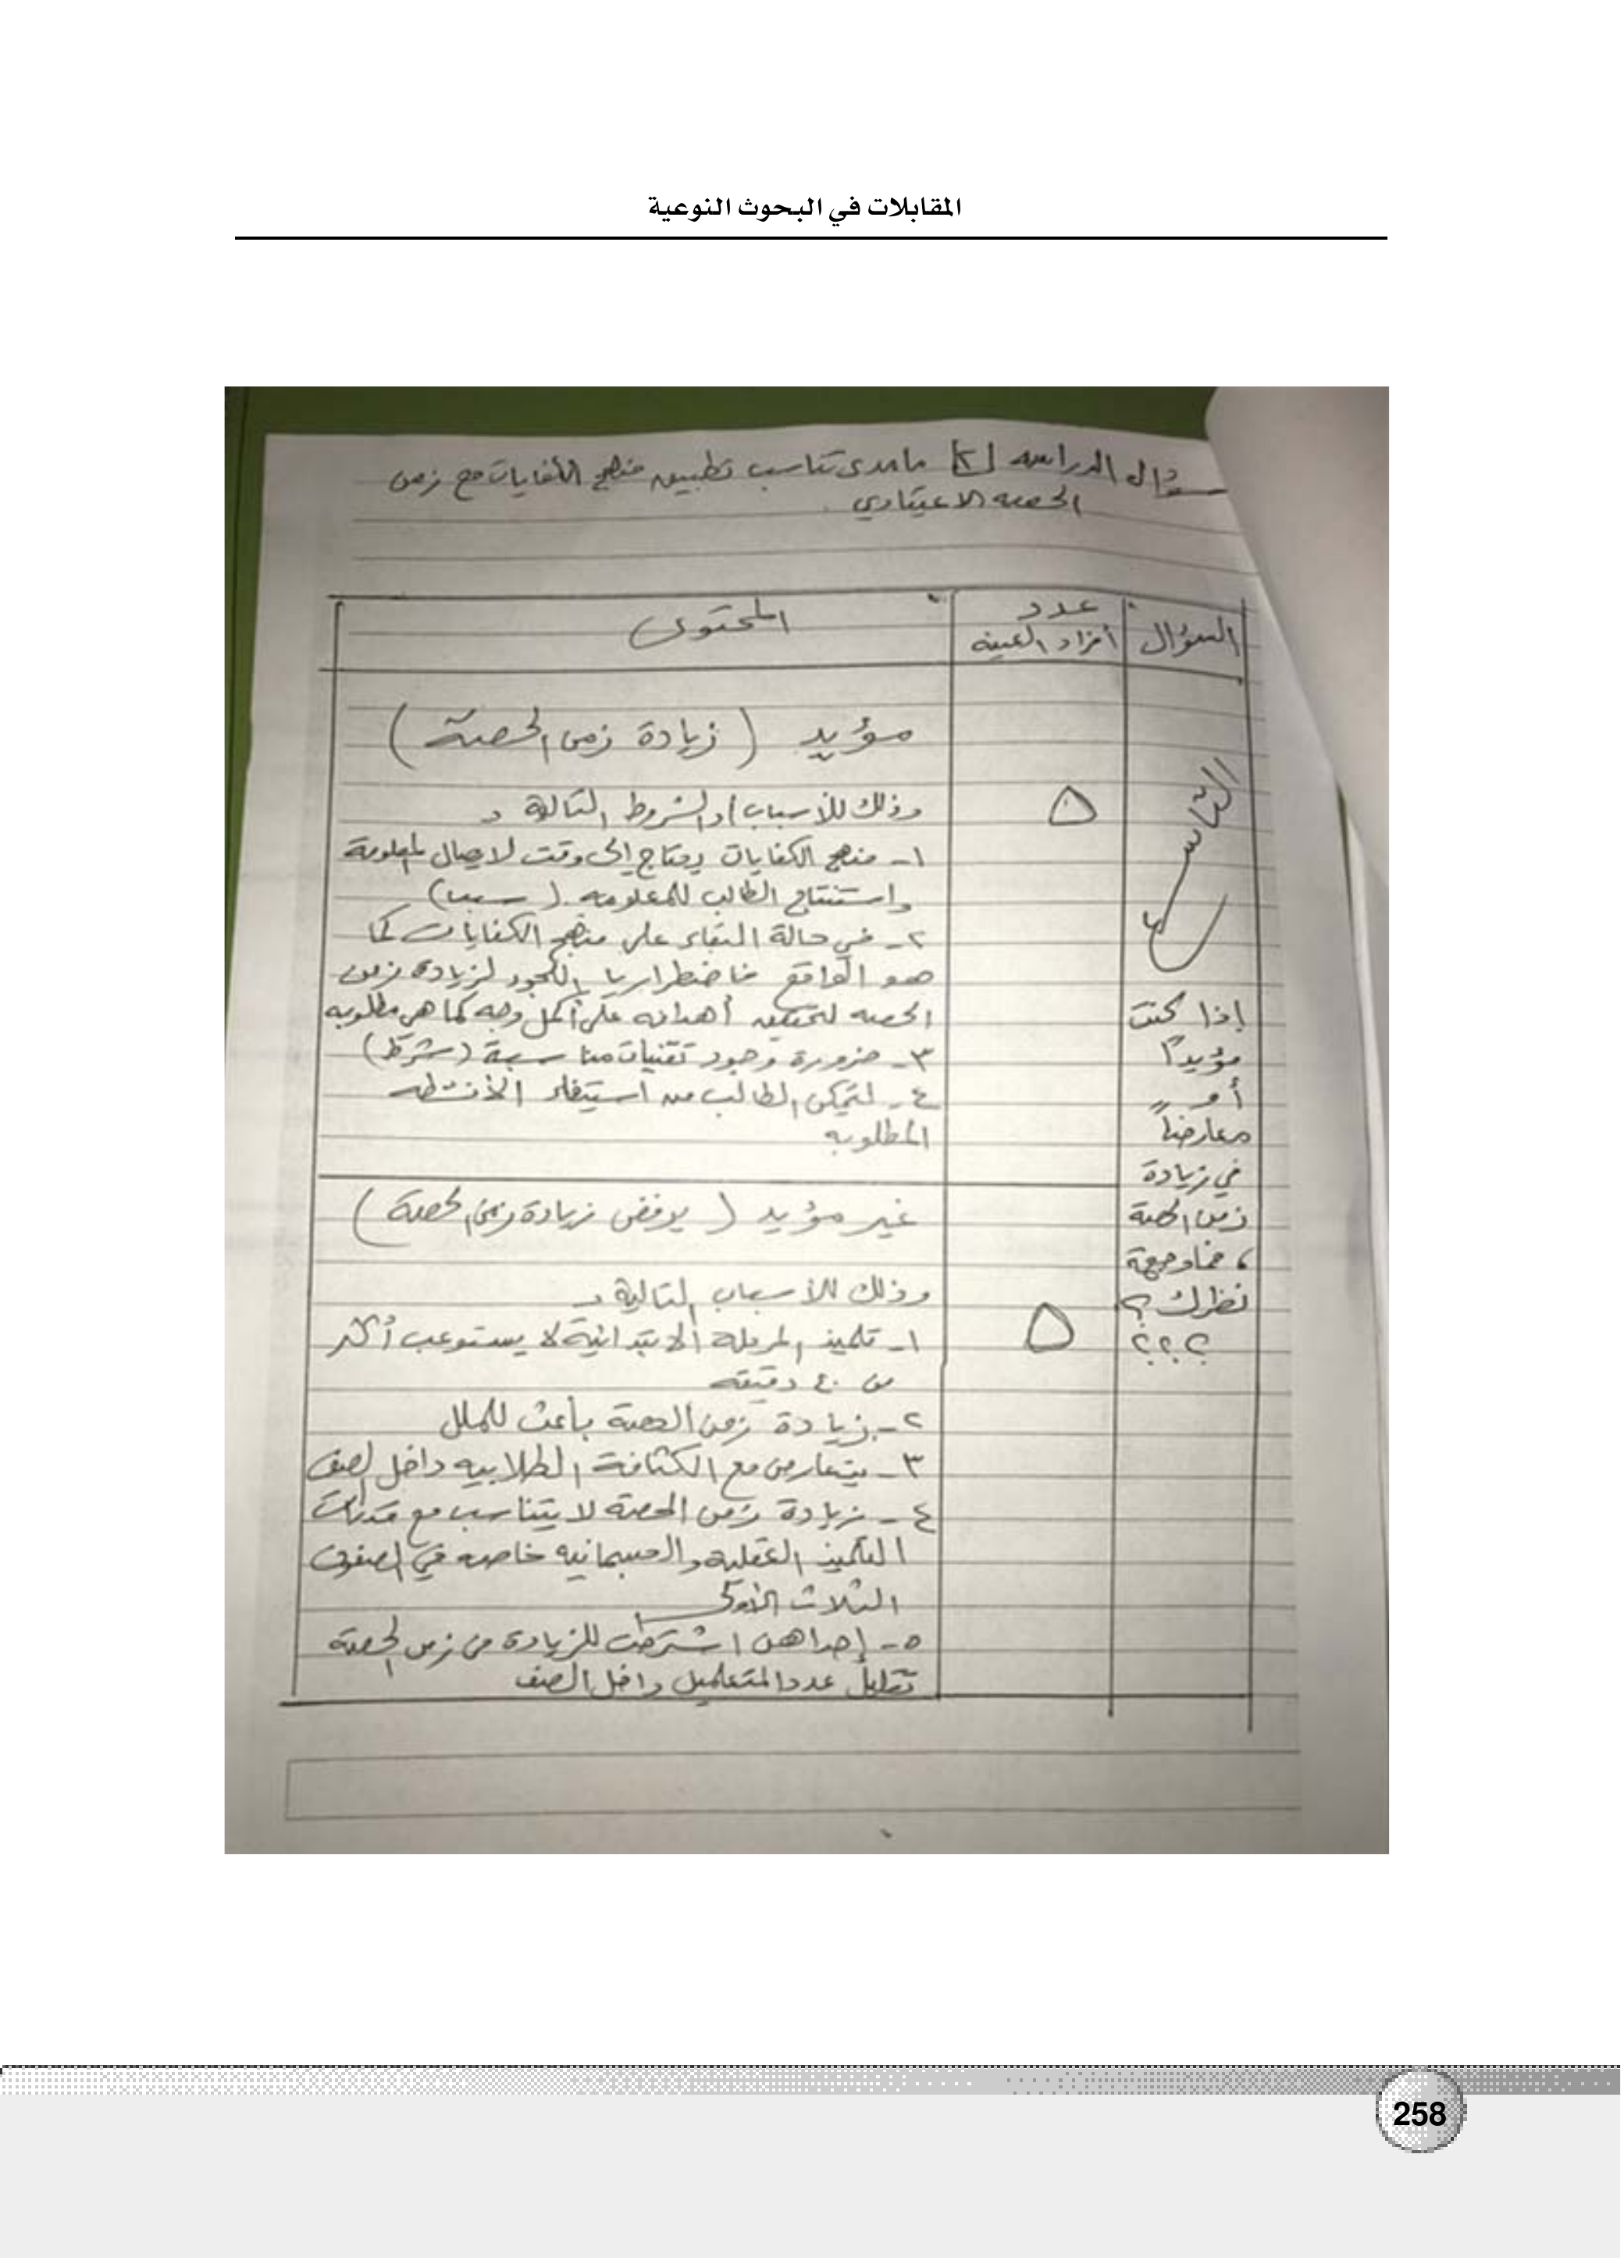 المقابلات في البحوث النوعية
سؤال الدراسه [٢] ما مدى تناسب تطبيق منهج الكفايات مع زمن
الحصه الاعتيادي.
السؤال
عدد
أفراد العينه
المحتوى
التاسع
إذا كنت
مؤيداً
أم
معارضاً
في زيادة
زمن الحصة
، فما وجهة
نظرك ؟
؟ ؟ ؟
٥
مؤيد ( زيادة زمن الحصة )
وذلك للأسباب / والشروط التالية :
١- منهج الكفايات يحتاج إلى وقت لايصال المعلومة
واستنتاج الطالب للمعلومه . (سبب)
٢- في حالة البقاء على منهج الكفايات كما
هو الواقع فاضطراريا اللجوء لزيادة زمن
الحصه لتحقيق أهدافه على أكمل وجه كما هي مطلوبه
٣- ضرورة وجود تقنيات مناسبة (شرط)
٤- لتمكن الطالب من استيفاء الأنشطه
المطلوبه
٥
غير مؤيد ( يرفض زيادة زمن الحصة )
وذلك للأسباب التالية :
١- تلميذ المرحلة الابتدائية لا يستوعب أكثر
من ٤٠ دقيقه
٢- زيادة زمن الحصة باعث للملل
٣- يتعارض مع الكثافة الطلابيه داخل الصف
٤- زيادة زمن الحصة لا يتناسب مع قدرات
التلميذ العقلية والجسمانيه خاصه في الصفوف
الثلاث الأولى
٥- إحداهن اشترطت للزيادة من زمن الحصة
تقليل عدد المتعلمين داخل الصف
258